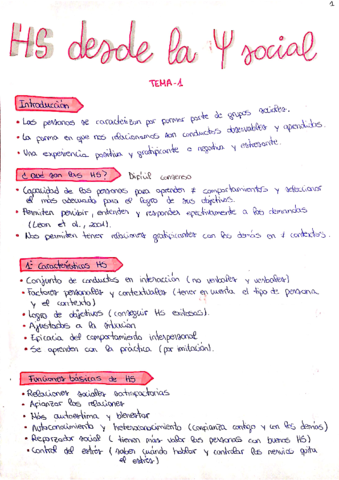 1
HS desde la Ψ social
TEMA-1
Introducción
• Las personas se caracterizan por formar parte de grupos sociales.
• La forma en que nos relacionamos son conductas observables y aprendidas.
• Una experiencia positiva y gratificante o negativa y estresante.
¿Qué son las HS? Difícil consenso
• Capacidad de las personas para aprender ≠ comportamientos y seleccionar
el más adecuado para el logro de sus objetivos.
• Permiten percibir, entender y responder efectivamente a las demandas
(Leon et al., 2001).
• Nos permiten tener relaciones gratificantes con los demás en ≠ contextos.
1: Características HS
• Conjunto de conductas en interacción (no verbales y verbales)
• Factores personales y contextuales (tener en cuenta el tipo de persona
y el contexto)
• Logro de objetivos (conseguir HS exitosas).
• Ajustadas a la situación
• Eficacia del comportamiento interpersonal
• Se aprenden con la práctica (por imitación).
Funciones básicas de HS
• Relaciones sociales satisfactorias
• Afianzar las relaciones
• Más autoestima y bienestar
• Autoconocimiento y heteroconocimiento (confianza contigo y con los demás)
• Reforzador social (tienen más valor las personas con buenas HS)
• Control del estrés (saber cuándo hablar y controlar los nervios quita
el estrés)